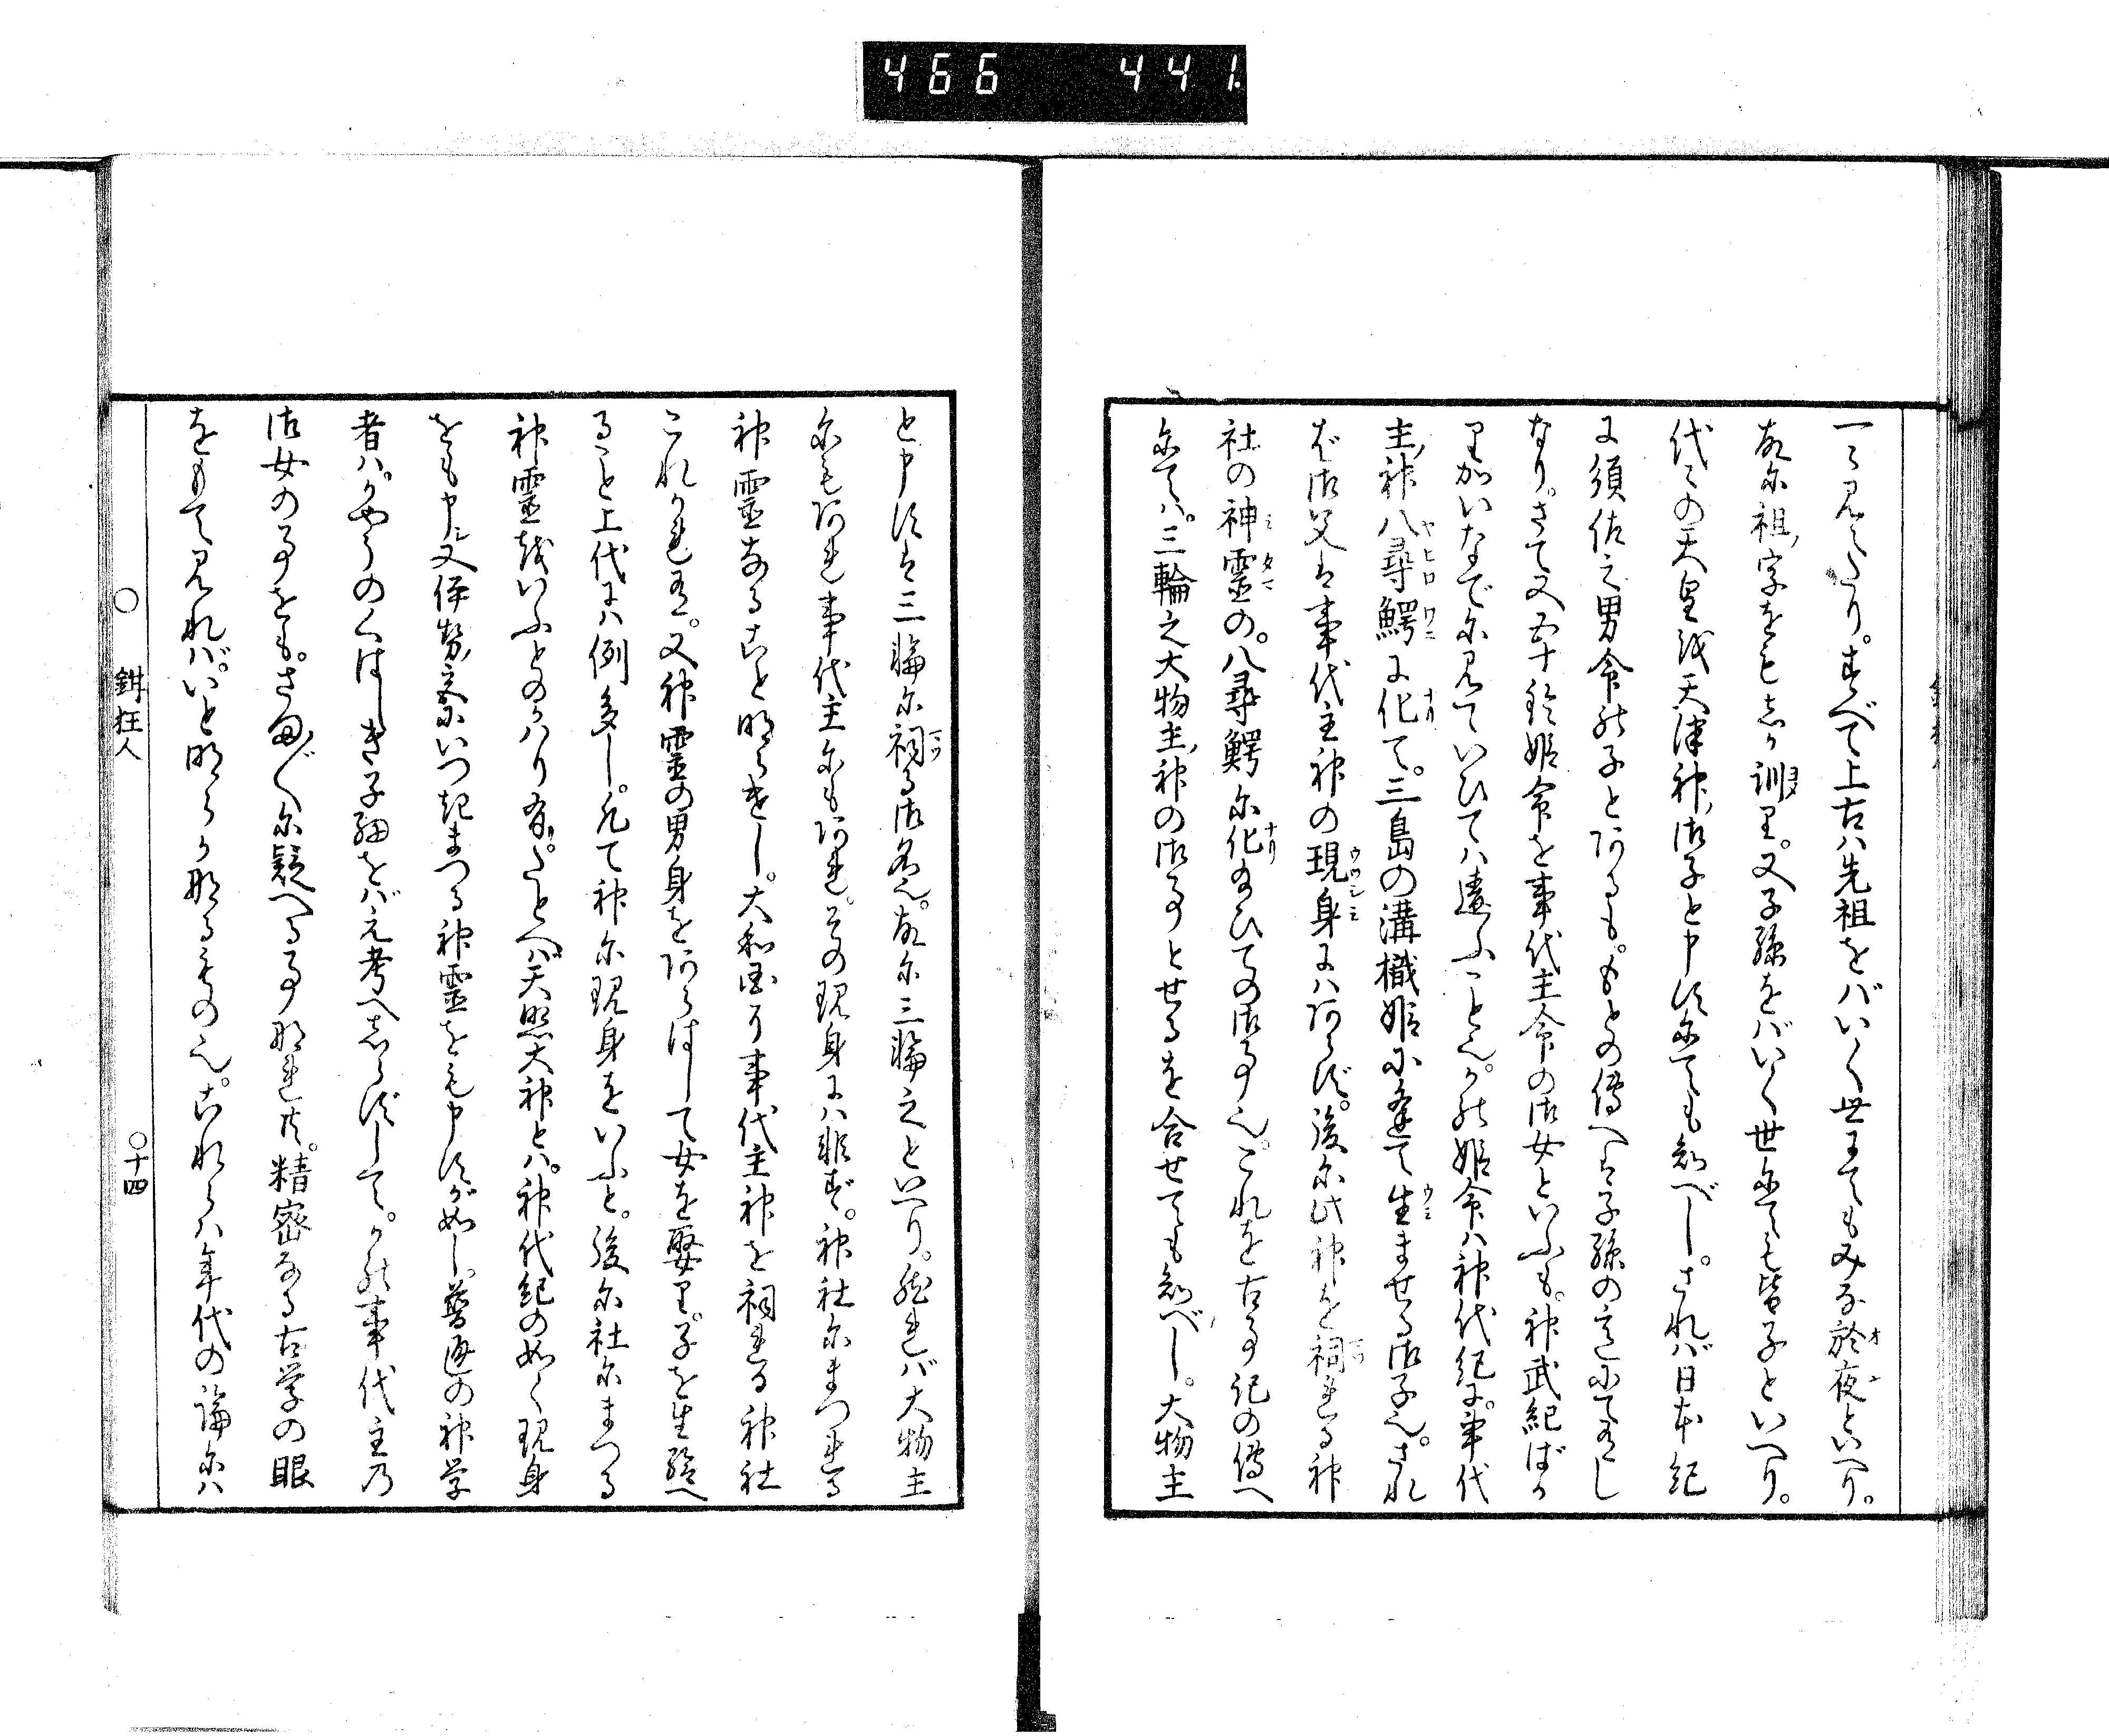 466 441
一つ見えたり。すべて上古ハ先祖をバいく世にてもみな於夜といへり。
故に祖ノ字をもしか訓り。又子孫をバいく世にても皆子といへり。
代々の天皇を天津神ノ御子と申すにても知べし。されバ日本紀
に須佐之男命の子とあるも。もとの傳へは子孫の意にて有し
なり。さて又五十鈴姫命を事代主命の御女といふも。神武紀ばか
りかいなでに見ていひてハ違ふこと也。かの姫命ハ神代紀に。事代
主ノ神八尋鰐に化て。三島の溝樴姫に逢て生ませる御子也。され
ど御父は事代主神の現身にハあらず。後に此神を祠れる神
社の神靈の。八尋鰐に化給ひての御事也。これを古事記の傳へ
にてハ。三輪之大物主ノ神の御事とせるを合せても知べし。大物主
と申すは三輪に祠る御名也。故に三輪之といへり。然れバ大物主
にもあれ事代主にもあれ。その現身にハ非ず。神社にまつれる
神靈なること明らけし。大和国に事代主神を祠れる神社
これかれ有。又神靈の男身をあらはして女を娶り。子を生給へ
ること上代にハ例多し。凡て神に現身をいふと。後に社にまつる
神靈をいふとのかハり有。たとへバ天照大神とハ。神代紀の如く現身
をも申シ又伊勢ノ宮にいつきまつる神靈をも申すが如し。普通の神学
者ハ。かやうのくはしき子細をバえ考へしらずして。かの事代主乃
御女の事をも。さまざまに疑へる事なれ共。精密なる古学の眼
をもて見れバ。いと明らかなるもの也。これらハ年代の論にハ
○ 鉗狂人 ○十四